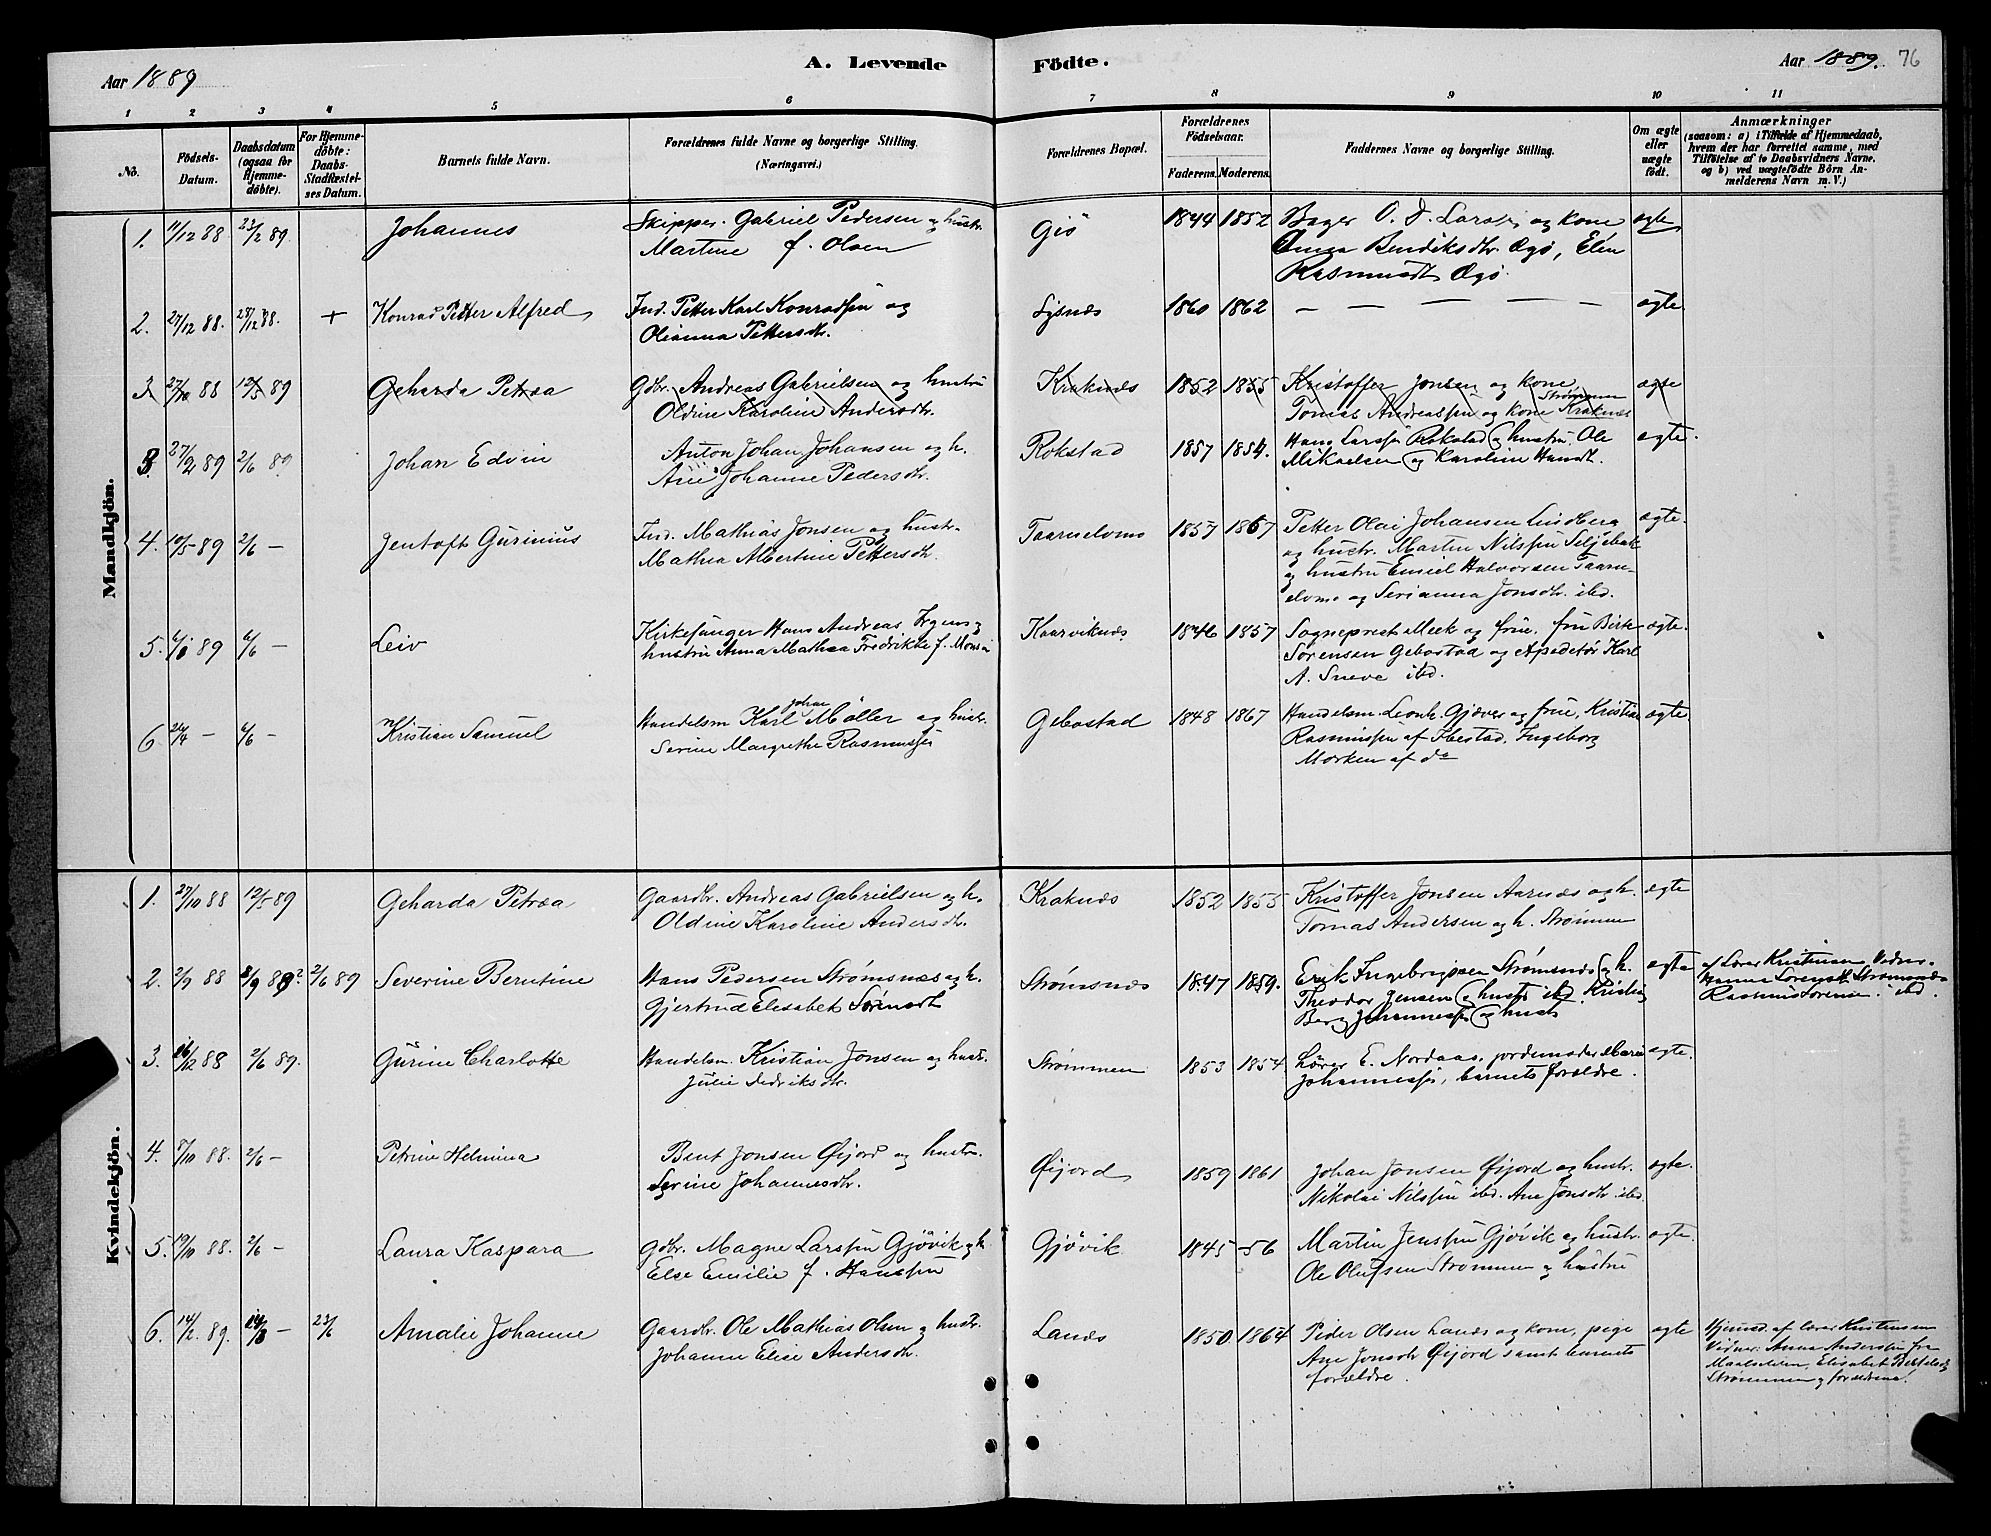 Aar 1889 A. Levende Födte. Aar 1889. 76
1 2 3 4 5 6 7 8 9 10 11
No. Födsels-Datum. Daabsdatum (ogsaa for Hjemme-döbte). For Hjemme-döbte: Daabs-Stadfæstel-ses Datum. Barnets fulde Navn. Forældrenes fulde Navne og borgerlige Stilling. (Næringsvei.) Forældrenes Bopæl. Forældrenes Födselsaar. Faderens. Moderens. Faddernes Navne og borgerlige Stilling. Om ægte eller uægte födt. Anmærkninger (saasom: a) i Tilfælde af Hjemmedaab, hvem der har forrettet samme, med Tilföielse af to Daabsvidners Navne, og b) ved uægtefödte Börn An-melderens Navn m. V.)
Mandkjön.
1. 11/12 88 23/2 89. Johannes Skipper Gabriel Pedersen og hustr. Giö 1844 1852 Bager O. J. Larsen og kone ægte
Martine f. Olsen Anna Bendiksdtr. Øgö, Elen
Rasmusdt Øgö.
2. 27/12 88. 28/12 88. + Konrad Petter Alfred Ind. Petter Karl Konradsen og Lysnæs 1860 1862 — — — — — ægte.
Olianna Pettersdtr.
3. 27/10 88 12/5 89 Geharda Petræa Gdbr. Andreas Gabrielsen og hustru Kraknæs 1852 1855 Kristoffer Jonsen og kone ægte
Oldine Karoline Andersdtr. Tomas Andreassen og kone Strømmen Kraknæs
3. 27/2 89 2/6 89 Johan Edvin Anton Johan Johansen og h. Rokstad 1857 1854. Hans Larssen Rokstad og hustru. Ole ægte.
Ane Johanne Pedersdtr. Mikaelsen og Karoline Hansdt.
4. 10/5 89 2/6 — Jentoft Gurinius Ind. Mathias Jonsen og hustr. Taarnelvmo 1857 1867 Petter Olai Johansen Lindberg ægte.
Mathea Albertine Pettersdtr. og hustr. Martin Nilssen Seljebak
og hustru Emiel Halvorsen Taarn-
elvmo og Serianna Jonsdtr. ibd.
5. 89 6/6 — Leiv Kirkesanger Hans Andreas Irgens og Kaarviknæs 1846 1857 Sogneprest Meek og frue, fru Birte ægte.
hustru Anna Mathea Fredrikke f. Monsen Sørensen Gebostad og Expeditör Karl
A. Sneve ibd.
6. 24/4 — 6/6 — Kristian Samuel Handelsm Karl Johan Möller og hustr. Gebostad 1848 1867 Handelsm. Leonh. Gjæver og frue, Kristian ægte
Serine Margrethe Rasmussen Rasmussen af Ibestad, Ingeborg
Morken af do
Kvindekjön.
1. 27/10 88 12/5 89 Geharda Petræa Gaardbr. Andreas Gabrielsen og h. Kraknæs 1852 1855 Kristoffer Jonsen Aarnæs og h. ægte
Oldine Karoline Andersdtr. Tomas Andersen og h. Strømmen
2. 2/9 88 8/9 89? 2/6 89 Severine Berntine Hans Pedersen Strømsnæs og h. Strømsnæs 1847 1859. Erik Ingebrigtsen Strømsnæs og h. ægte af Lærer Kristensen Vidner.
Gjertrud Elisabet Sörensdt Theodor Jensen og hustr ibd. Kristian Hanna Lorensdt Strømsnæs
Berg Johannessen og hust Rasmus Lorensen ibd.
3. 16/12 88 2/6 89. Gurine Charlotte Handelsm. Kristian Jonsen og hustr. Strømmen 1853 1854 Lærer E. Nordaas, jordemoder Marie ægte.
Julie Dedriksdtr. Johannessen, barnets forældre.
4. 8/10 88. 2/6 — Petrine Helmina Bent Jonsen Øijord og hustr. Øijord 1859 1861 Johan Jonsen Øijord og hustr. ægte.
Serine Johannesdtr. Nikolai Nilssen ibd. Ane Jonsdtr. ibd.
5. 19/10 88. 2/6 — Laura Kaspara Gdbr. Magne Larssen Gjövik og h. Gjövik 1845 -56 Martin Jenssen Gjövik og hustr. ægte.
Else Emilie f. Hanssen Ole Olufsen Strømmen og hustru
6. 14/2. 89. 14/3 — 23/6 Amalie Johanne Gaardbr. Ole Mathias Olsen og hustr. Lanæs 1850 1864 Peder Olsen Lanæs og kone, pige ægte Hjemd. af lærer Kristensen
Johanne Elise Andersdtr. Ane Jonsdtr Øijord samt barnets Vidner: Anna Andersen fra
forældre. Maalselven, Elisabet
Strømmen og forældrene.